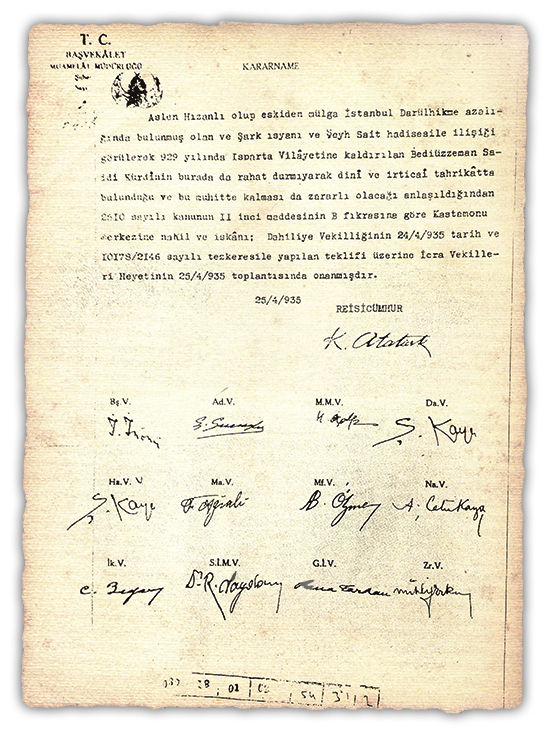 T. C.
BAŞVEKÂLET
MUAMELÂT MÜDÜRLÜĞÜ
KARARNAME
Aslen Hızanlı olup eskiden mülga İstanbul Darülhikme azalı-
ğında bulunmuş olan ve Şark isyanı ve Şeyh Sait hadisesile ilişiği
görülerek 929 yılında Isparta Vilâyetine kaldırılan Bediüzzeman Sa-
idi Kürdinin burada da rahat durmıyarak dinî ve irticaî tahrikâtta
bulunduğu ve bu muhitte kalması da zararlı olacağı anlaşıldığından
2510 sayılı kanunun II inci maddesinin B fıkrasına göre Kastamonu
merkezine nakil ve iskânı; Dahiliye Vekilliğinin 24/4/935 tarih ve
10178/2146 sayılı tezkeresile yapılan teklifi üzerine İcra Vekille-
ri Heyetinin 25/4/935 toplantısında onanmıştır.
25/4/935
REİSİCÜMHUR
K. Atatürk
Bş.V. Ad.V. M.M.V. Da.V.
İ. İnönü Ş. Kaya
Ha.V. V Ma.V. Mf.V. Na.V.
Ş. Kaya F. Ağralı A. Çetinkaya
İk.V. S.İ.M.V. G.İ.V. Zr.V.
C. Bayar Dr. R. Saydam Rana Tarhan Muhlis Erkmen